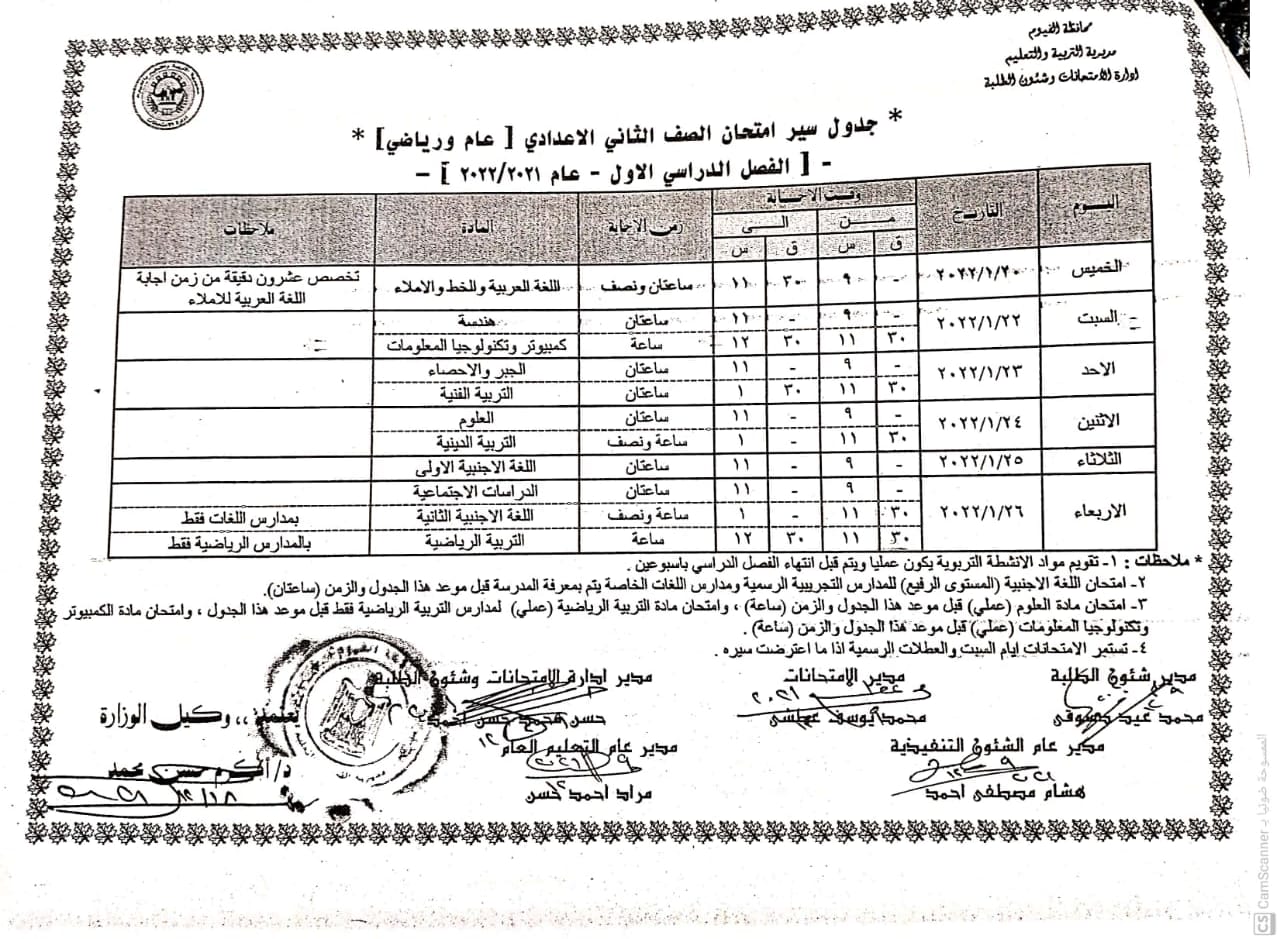 محافظة الفيوم
مديرية التربية والتعليم
ادارة الامتحانات وشئون الطلبة
* جدول سير امتحان الصف الثاني الاعدادي [ عام ورياضي] *
- [ الفصل الدراسي الاول - عام ٢٠٢٢/٢٠٢١ ] –
اليوم التاريخ وقت الاجابة زمن الاجابة المادة ملاحظات
من الى
ق س ق س
الخميس ٢٠٢٢/١/٢٠ - ٩ ٣٠ ١١ ساعتان ونصف اللغة العربية والخط والاملاء تخصص عشرون دقيقة من زمن اجابة
اللغة العربية للاملاء
السبت ٢٠٢٢/١/٢٢ - ٩ - ١١ ساعتان هندسة
٣٠ ١١ ٣٠ ١٢ ساعة كمبيوتر وتكنولوجيا المعلومات
الاحد ٢٠٢٢/١/٢٣ - ٩ - ١١ ساعتان الجبر والاحصاء
٣٠ ١١ ٣٠ ١ ساعتان التربية الفنية
الاثنين ٢٠٢٢/١/٢٤ - ٩ - ١١ ساعتان العلوم
٣٠ ١١ - ١ ساعة ونصف التربية الدينية
الثلاثاء ٢٠٢٢/١/٢٥ - ٩ - ١١ ساعتان اللغة الاجنبية الاولى
الاربعاء ٢٠٢٢/١/٢٦ - ٩ - ١١ ساعتان الدراسات الاجتماعية
٣٠ ١١ - ١ ساعة ونصف اللغة الاجنبية الثانية بمدارس اللغات فقط
٣٠ ١١ ٣٠ ١٢ ساعة التربية الرياضية بالمدارس الرياضية فقط
* ملاحظات : ١- تقويم مواد الانشطة التربوية يكون عمليا ويتم قبل انتهاء الفصل الدراسي باسبوعين .
٢- امتحان اللغة الاجنبية (المستوى الرفيع) للمدارس التجريبية الرسمية ومدارس اللغات الخاصة يتم بمعرفة المدرسة قبل موعد هذا الجدول والزمن (ساعتان).
٣- امتحان مادة العلوم (عملي) قبل موعد هذا الجدول والزمن (ساعة) ، وامتحان مادة التربية الرياضية (عملي) لمدارس التربية الرياضية فقط قبل موعد هذا الجدول ، وامتحان مادة الكمبيوتر
وتكنولوجيا المعلومات (عملي) قبل موعد هذا الجدول والزمن (ساعة) .
٤- تستمر الامتحانات ايام السبت والعطلات الرسمية اذا ما اعترضت سيره .
مدير شئون الطلبة مدير الامتحانات مدير ادارة الامتحانات وشئون الطلبة
محمد عيد دسوقى محمد يوسف عطشى حسن محمد حسن احمد يعتمد ،، وكيل الوزارة
مدير عام الشئون التنفيذية مدير عام التعليم العام
د/ أكرم حسن محمد
هشام مصطفى احمد مراد احمد حسن
الممسوحة ضوئيا بـ CamScanner
CS